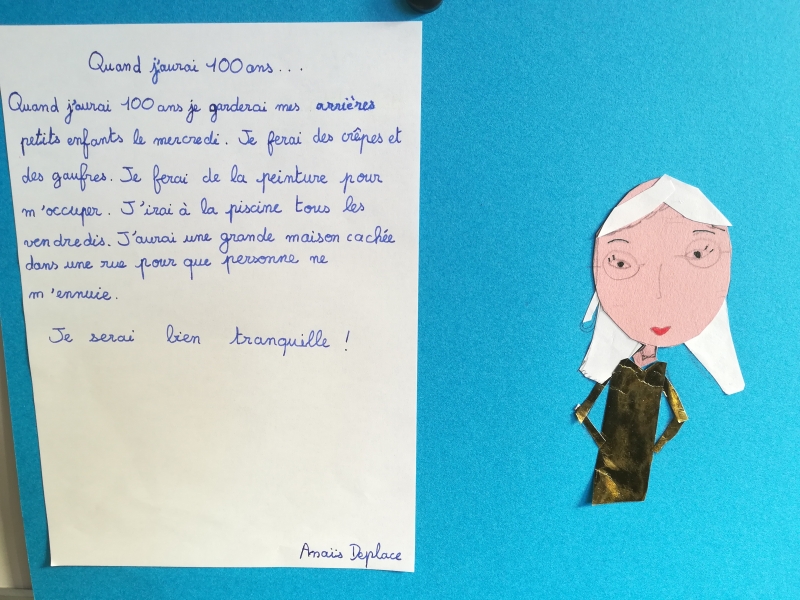 Quand j'aurai 100 ans...
Quand j'aurai 100 ans je garderai mes arrières
petits enfants le mercredi. Je ferai des crêpes et
des gaufres. Je ferai de la peinture pour
m'occuper. J'irai à la piscine tous les
vendredis. J'aurai une grande maison cachée
dans une rue pour que personne ne
m'ennuie.
Je serai bien tranquille !
Anaïs Deplace